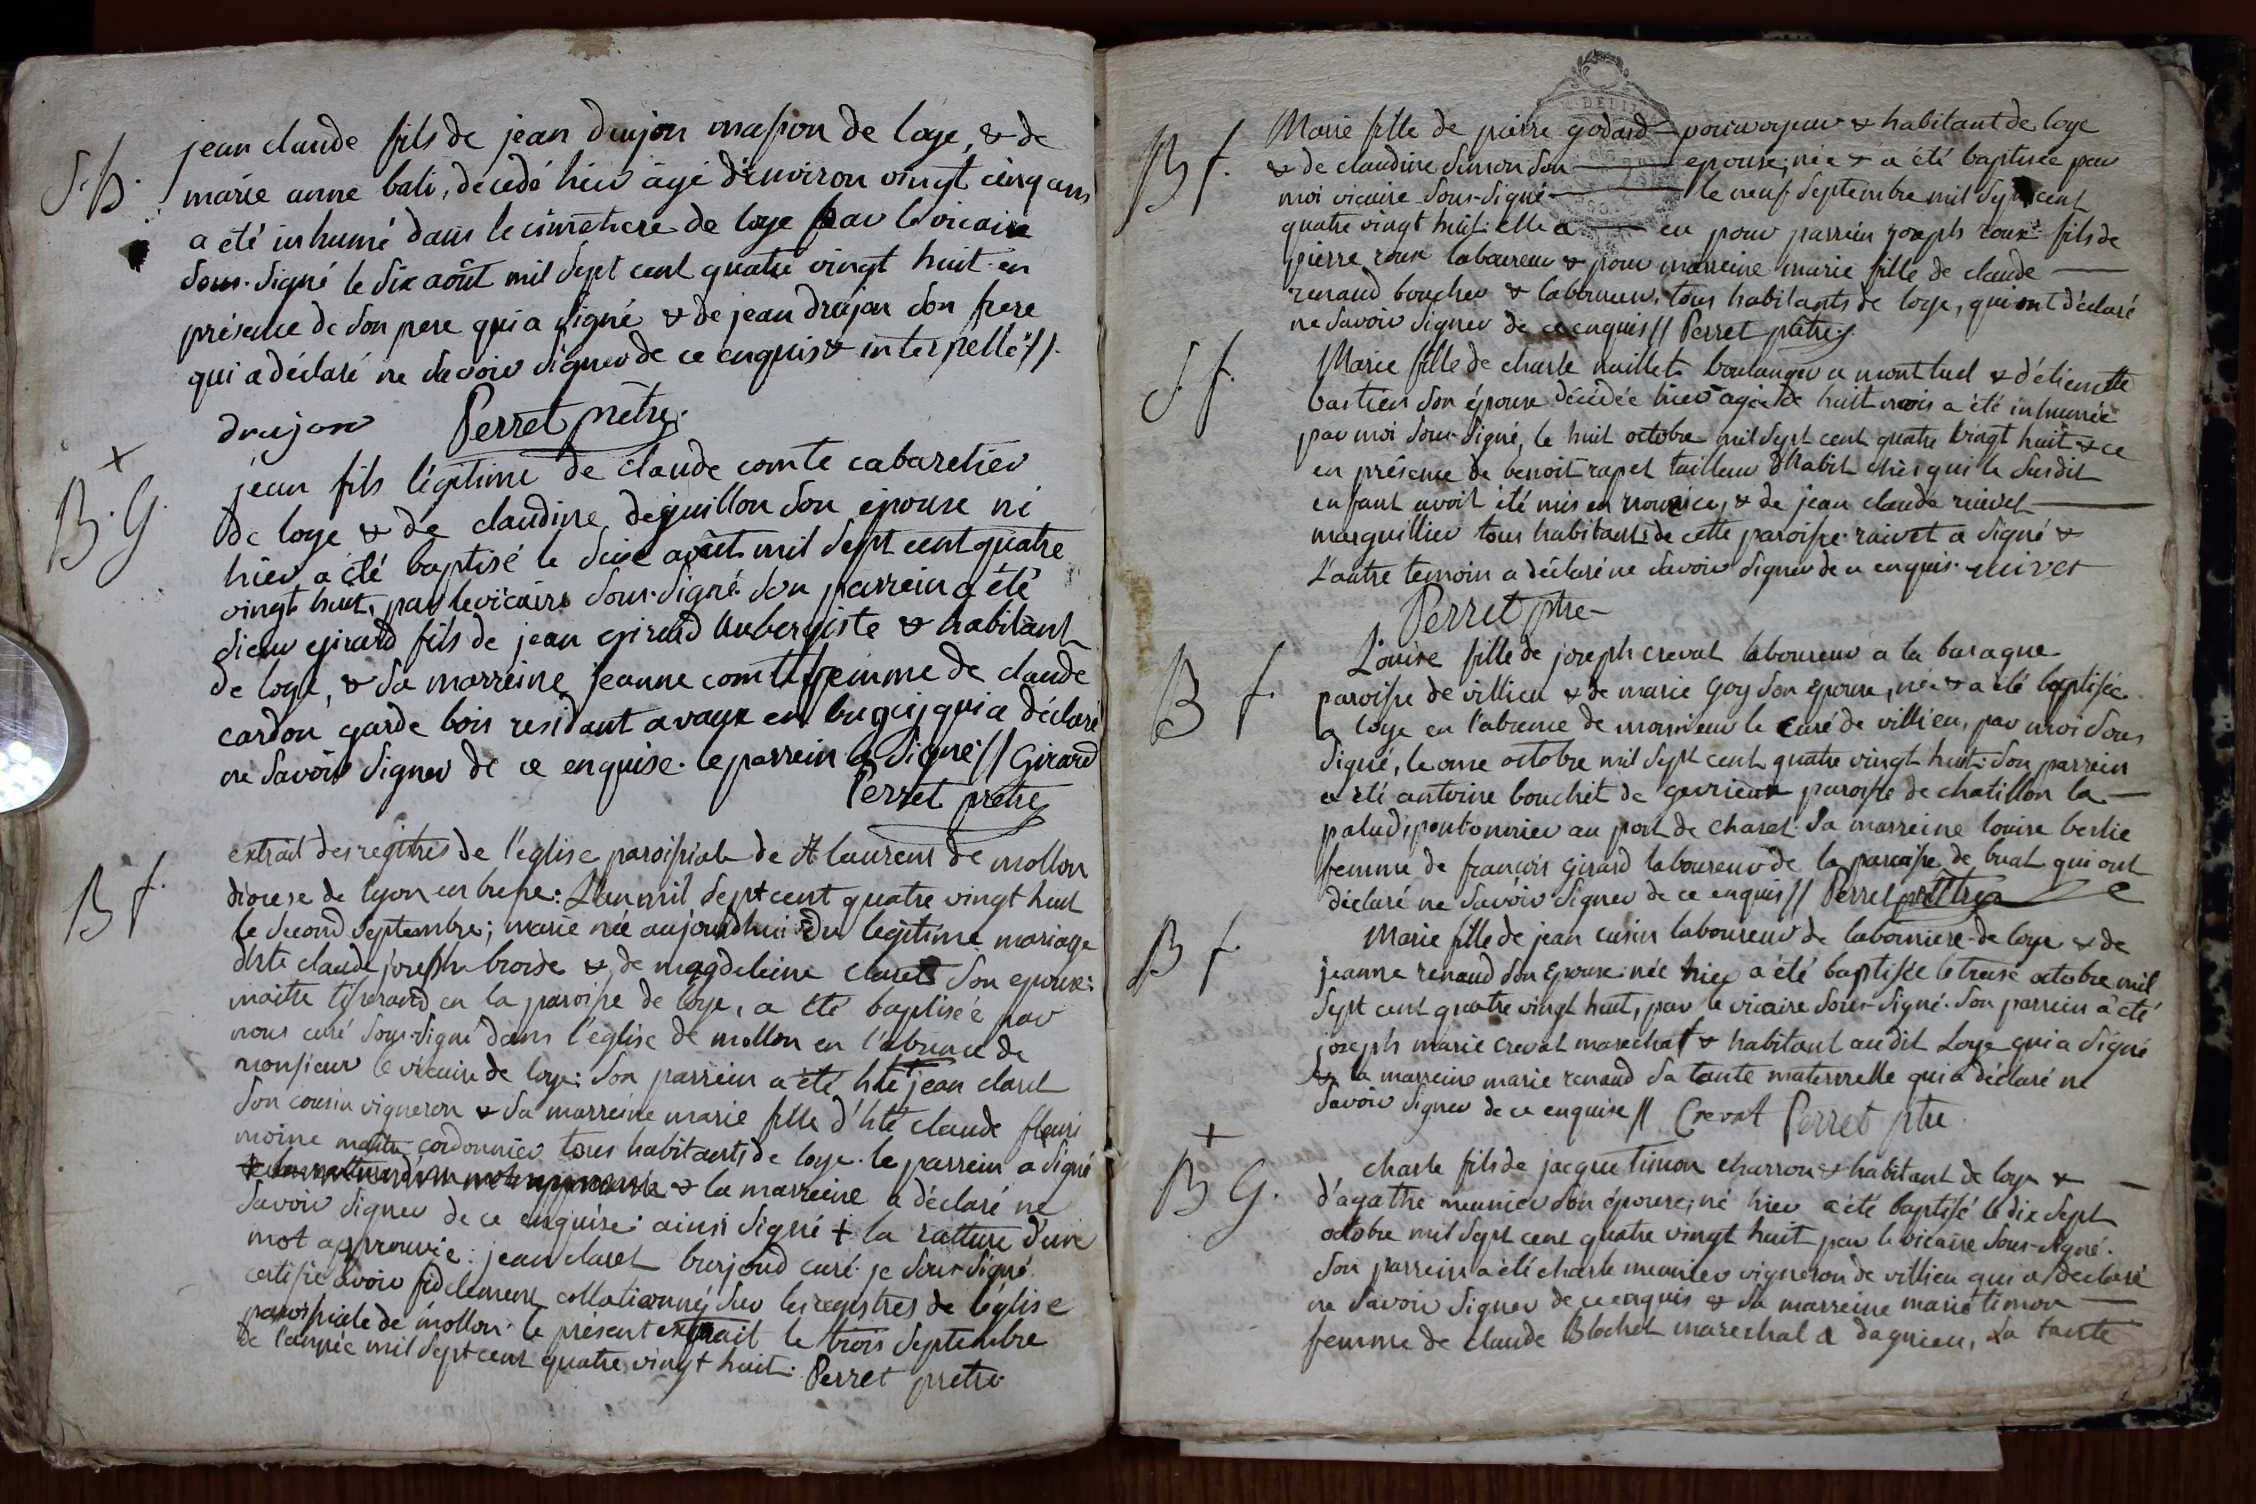 S. h.
jean claude fils de jean drujon masson de loye, & de
marie anne bali, décédé hier âgé d'environ vingt cinq ans
a été inhumé dans le cimetiere de loye par le vicaire
sous-signé le six août mil sept cent quatre vingt huit en
présence de son pere qui a signé & de jean drujon son frere
qui a déclaré ne savoir signer de ce enquis & interpellé //.
drujon Perret prêtre.
+
B. G.
jean fils légitime de claude comte cabaretier
de loye & de claudine deguillon son épouse né
hier a été baptisé le seise août mil sept cent quatre
vingt huit, par le vicaire sous-signé. son parrein a été
sieur girard fils de jean girard aubergiste & habitant
de loye, & sa marreine jeanne comte femme de claude
cardon garde bois residant a vaux en bugeij qui a déclaré
ne savoir signer de ce enquise. le parrein a signé // Girard
Perret prêtre
B f.
extrait des registres de l'eglise paroissiale de st laurent de mollon
diocese de lyon en bresse: L'an mil sept cent quatre vingt huit
le second septembre; marie née aujourdhui du légitime mariage
d'hte claude joseph broise & de magdeleine claret son epouse:
maitre tisserand en la paroisse de loye, a été baptisée par
nous curé sous-signé dans l'église de mollon en l'absence de
monsieur le vicaire de loye: son parrein a été hte jean claret
son cousin vigneron & sa marreine marie fille d'hte claude fleuri
moine maitre cordonnier tous habitants de loye. le parrein a signé
& la marreine a déclaré ne
savoir signer de ce enquise: ainsi signé + la rature d'un
mot approuvée: jean claret burjoud curé. je sous-signé
certifie avoir fidelement collationné sur les registres de l'église
paroissiale de mollon le présent extrait le trois septembre
de l'année mil sept cent quatre vingt huit. Perret pretre
B f.
Marie fille de pierre godard pourvoyeur & habitant de loye
& de claudine simon son epouse; née & a été baptisée par
moi vicaire sous-signé le neuf septembre mil sept cent
quatre vingt huit: elle a eu pour parrein joseph roux fils de
pierre roux laboureur & pour marreine marie fille de claude
renaud boucher & laboureur, tous habitants de loye, qui ont déclaré
ne savoir signer de ce enquis // Perret prêtre
S. f.
Marie fille de charle naillet boulanger a montluel & d'étiennette
bastien son épouse décédée hier agée de huit mois a été inhumée
par moi sous-signé, le huit octobre mil sept cent quatre vingt huit & ce
en présence de benoit rapet tailleur d'habit chés qui le susdit
enfant avoit été mis en nourice, & de jean claude ruivet
marguillier tous habitants de cette paroisse. ruivet a signé &
L'autre temoin a déclaré ne savoir signer de ce enquis. ruivet
Perret ptre
B f.
Louise fille de joseph crevat laboureur a la baraque
paroisse de villieu & de marie goy son epouse, née & a été baptisée
a loye en l'absence de monsieur le curé de villieu, par moi sous
signé, le onse octobre mil sept cent quatre vingt huit. son parrein
a été antoine bouchet de gevrieux paroisse de chatillon la
palud, pontonnier au port de chasel. sa marreine louise berlie
femme de françois girard laboureur de la paroisse de buat qui ont
déclaré ne savoir signer de ce enquis // Perret prêtre
B f.
Marie fille de jean cusin laboureur de la bonniere de loye & de
jeanne renaud son epouse née hier a été baptisée le treise octobre mil
sept cent quatre vingt huit, par le vicaire sous-signé. son parrein a été
joseph marie crevat marechal & habitant audit Loye qui a signé
& sa marreine marie renaud sa tante maternelle qui a déclaré ne
savoir signer de ce enquise // Crevat Perret ptre
+
B G.
charle fils de jacque timon charron & habitant de loye &
d'agathe meunier son épouse; né hier a été baptisé le dix sept
octobre mil sept cent quatre vingt huit par le vicaire sous-signé.
Son parrein a été charle meunier vigneron de villieu qui a déclaré
ne savoir signer de ce enquis & sa marreine marie timon
femme de claude Blochet marechal a dagnieu, sa tante